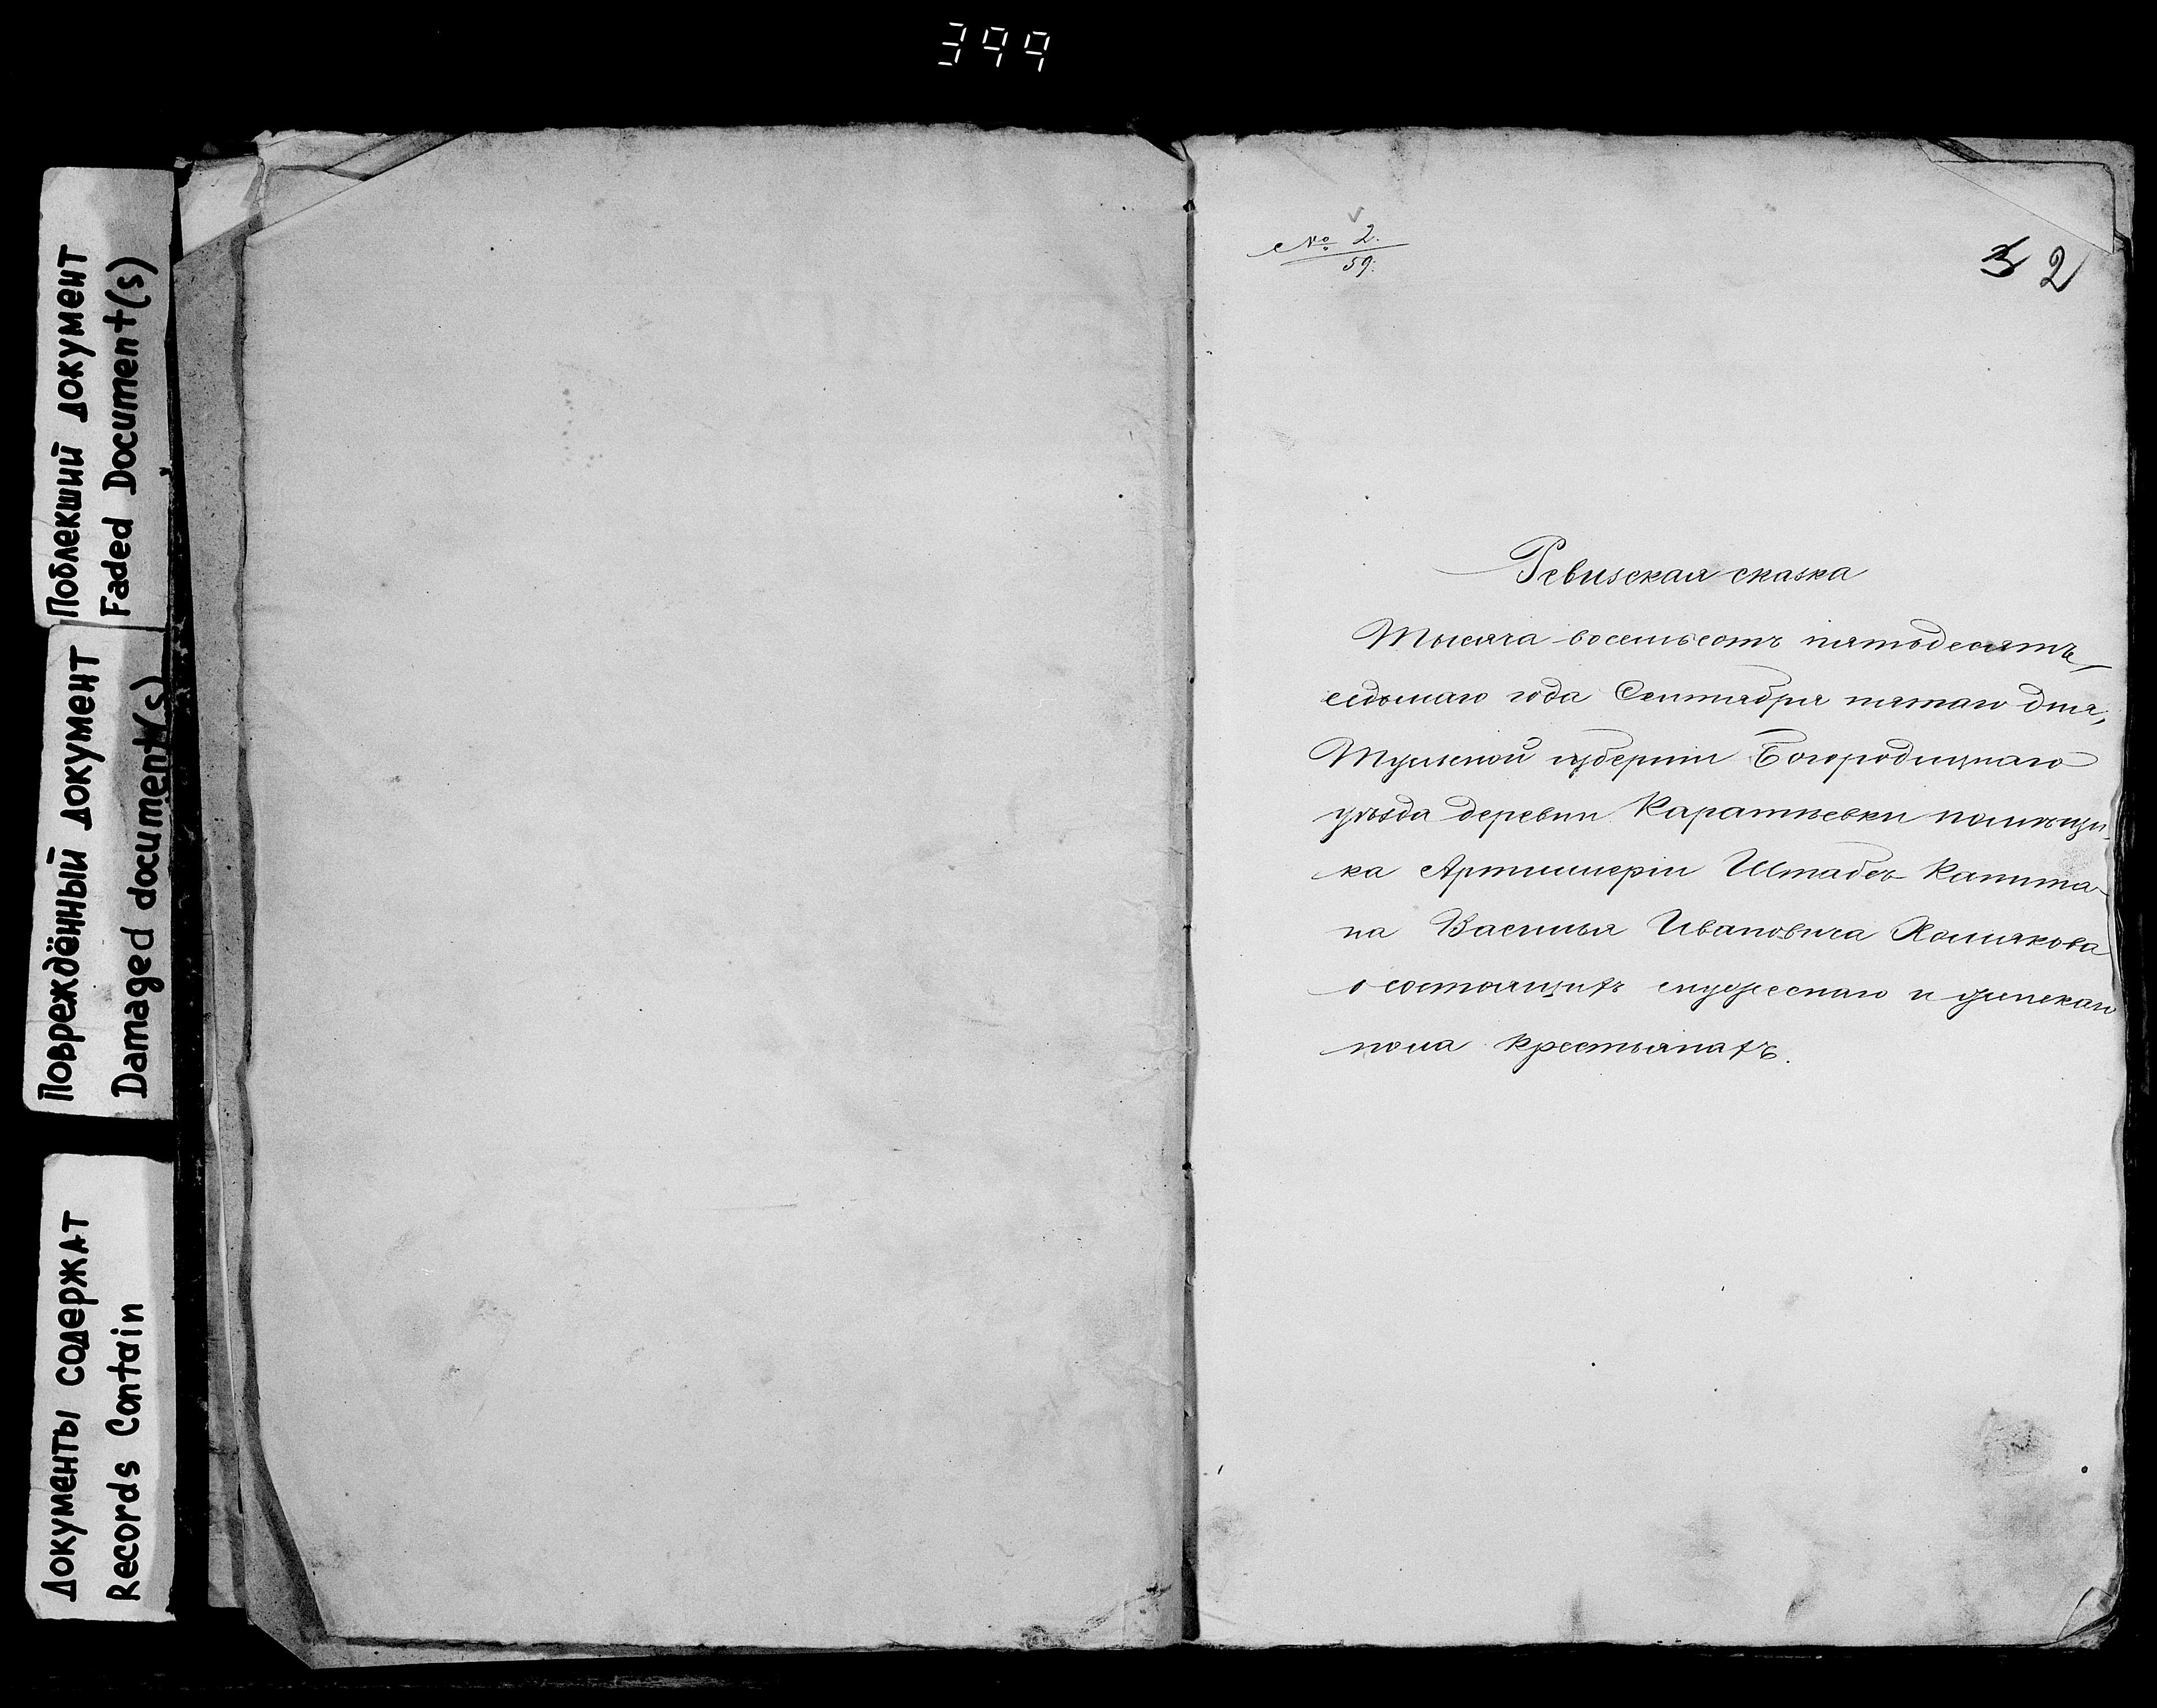 399
Поблекший документ
Faded Document(s)
Повреждённый документ
Damaged document(s)
Документы содержат
Records Contain
№ 2.
59.
2
Ревизская сказка
Тысяча восемьсотъ пятьдесятъ
седьмаго года Сентября пятаго дня,
Тульской губерніи Богородицкаго
уѣзда деревни помѣщи-
ка Артиллеріи Штабсъ Капита-
на Василья Ивановича Хомякова
о состоящихъ мужеского и женскаго
пола крестьянахъ.